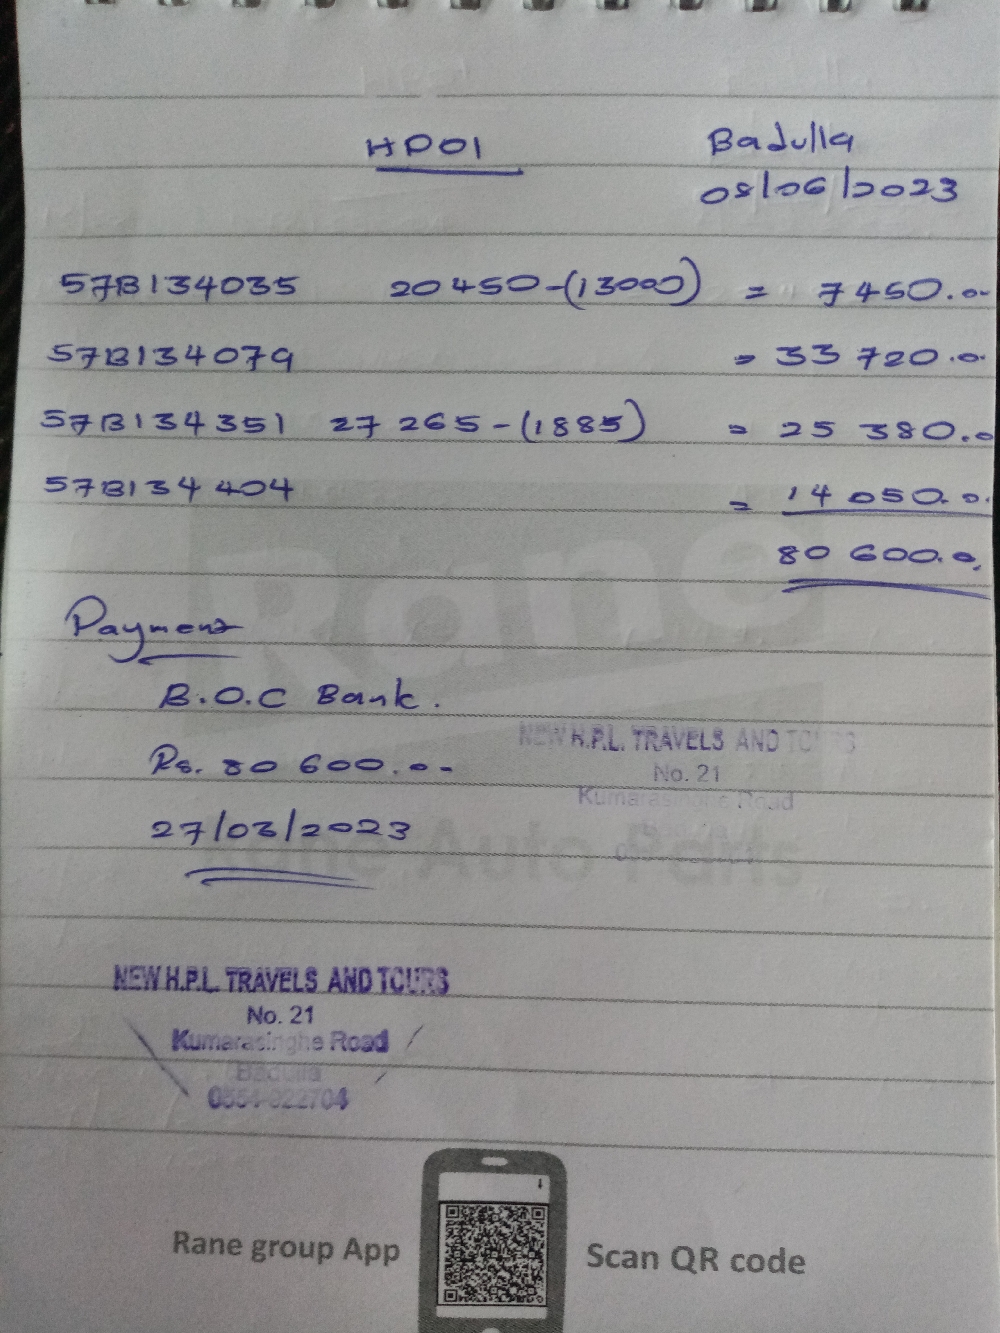 HP01 Badulla
08/06/2023
57B134035 20450-(13000) = 7450.00
57B134079 = 33720.00
57B134351 27265-(1885) = 25380.00
57B134404 = 14050.00
80600.00
Payment
B.O.C Bank.
Rs. 80 600.00
27/03/2023
NEW H.P.L. TRAVELS AND TOURS
No. 21
Kumarasinghe Road
Rane
Rane Auto Parts
NEW H.P.L. TRAVELS AND TOURS
No. 21
Kumarasinghe Road
Badulla
Rane group App
Scan QR code